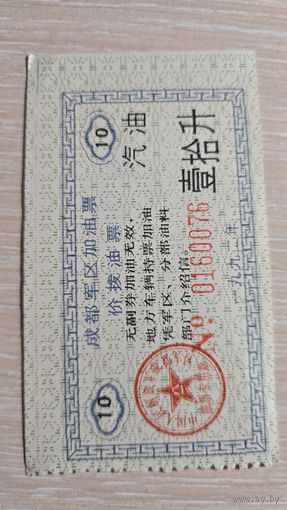 成都军区加油票
价拨油票
10
10
无副券加油无效，
地方车辆持票加油
凭军区、分部油料
部门介绍信。
汽油
壹拾升
№ 0160076
一九九二年
www.ay.by